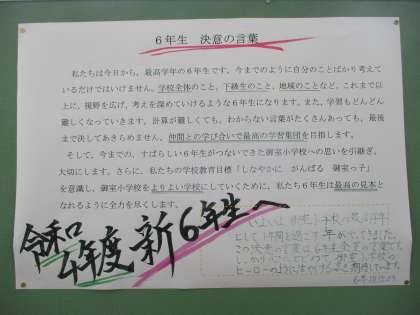 6年生　決意の言葉
私たちは今日から、最高学年の6年生です。今までのように自分のことばかり考えて
いるだけではいけません。学校全体のこと、下級生のこと、地域のことなど、これまで以
上に、視野を広げ、考えを深めていけるような6年生になります。また、学習もどんどん
難しくなっていきます。計算が難しくても、わからない言葉がたくさんあっても、最後
まで決してあきらめません。仲間との学び合いで最高の学習集団を目指します。
そして、今までの、すばらしい6年生がつないできた御室小学校への思いを引継ぎ、
大切にします。さらに、私たちの学校教育目標「しなやかに　がんばる　御室っ子」
を意識し、御室小学校をよりよい学校にしていくために、私たち6年生は最高の見本と
なれるように全力を尽くします。
令和
4年度 新6年生へ
いよいよ 御室小学校の最高学年
として1年間を過ごす年がやってきました。
この決意の言葉は6年生全員の言葉です。
ヒーローの